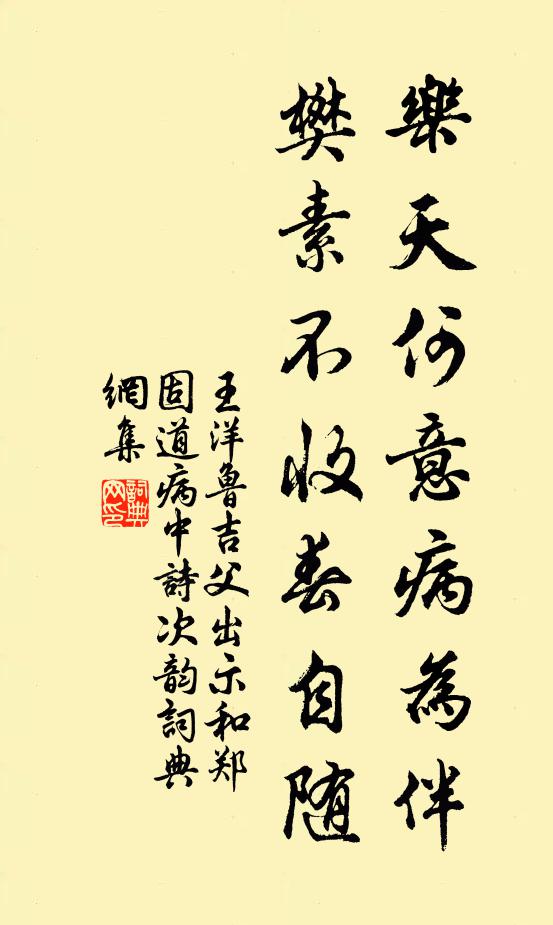 樂天何意病為伴
樊素不收春自随
王洋魯吉父出示和郑
固道病中詩次韵詞典
網集
詞典網印